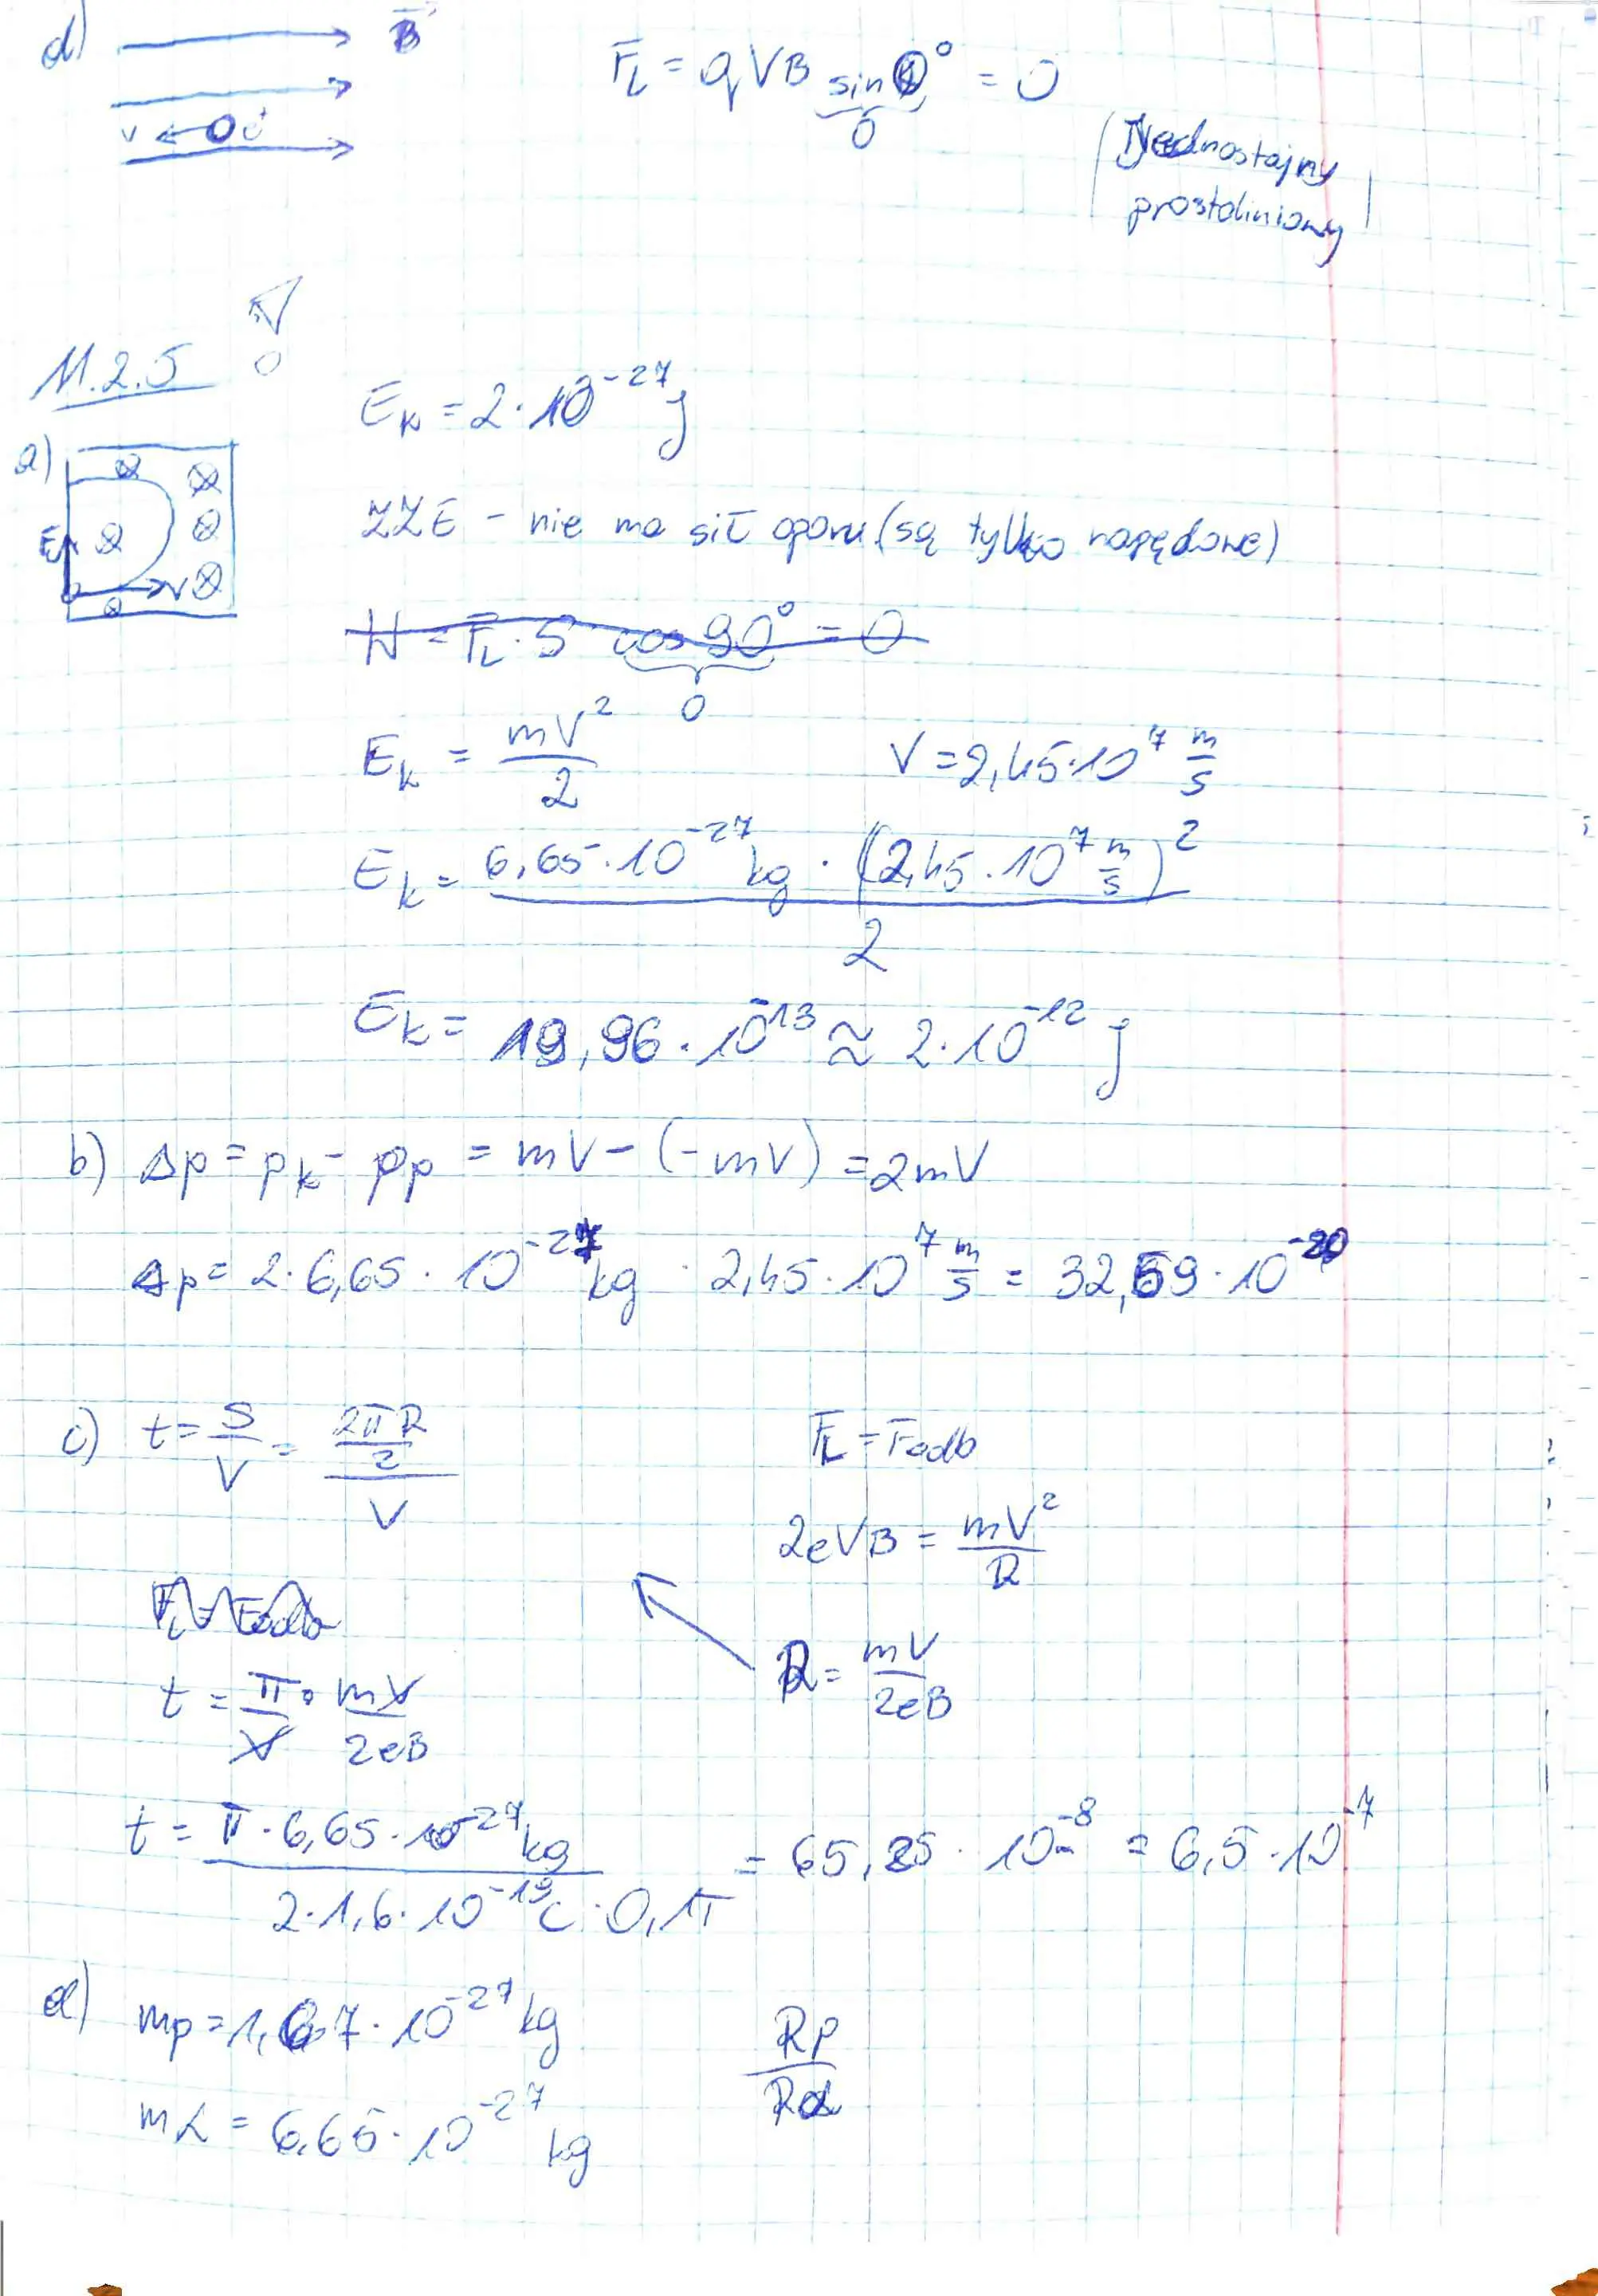 d) B
F_L = qVB sin 0° = 0
0
v e
Jednostajny
prostoliniowy
11.2.5
E_k = 2 · 10^-27 J
a)
ZZE - nie ma sił oporu (są tylko napędowe)
V
W = F_L · S cos 90° = 0
0
E_k = mV²/2 V = 2,45 · 10^7 m/s
E_k = 6,65 · 10^-27 kg · (2,45 · 10^7 m/s)² / 2
E_k = 19,96 · 10^-13 ≈ 2 · 10^-12 J
b) Δp = p_k - p_p = mV - (-mV) = 2mV
Δp = 2 · 6,65 · 10^-27 kg · 2,45 · 10^7 m/s = 32,59 · 10^-20
c) t = S/V = (2πR/2)/V F_L = F_odb
2eVB = mV²/R
F_L = F_odb
R = mV/2eB
t = π/V · mV/2eB
t = π · 6,65 · 10^-27 kg / 2 · 1,6 · 10^-19 C · 0,1T = 65,25 · 10^-8 = 6,5 · 10^-7
d) mp = 1,67 · 10^-27 kg Rp/Rα
mα = 6,65 · 10^-27 kg